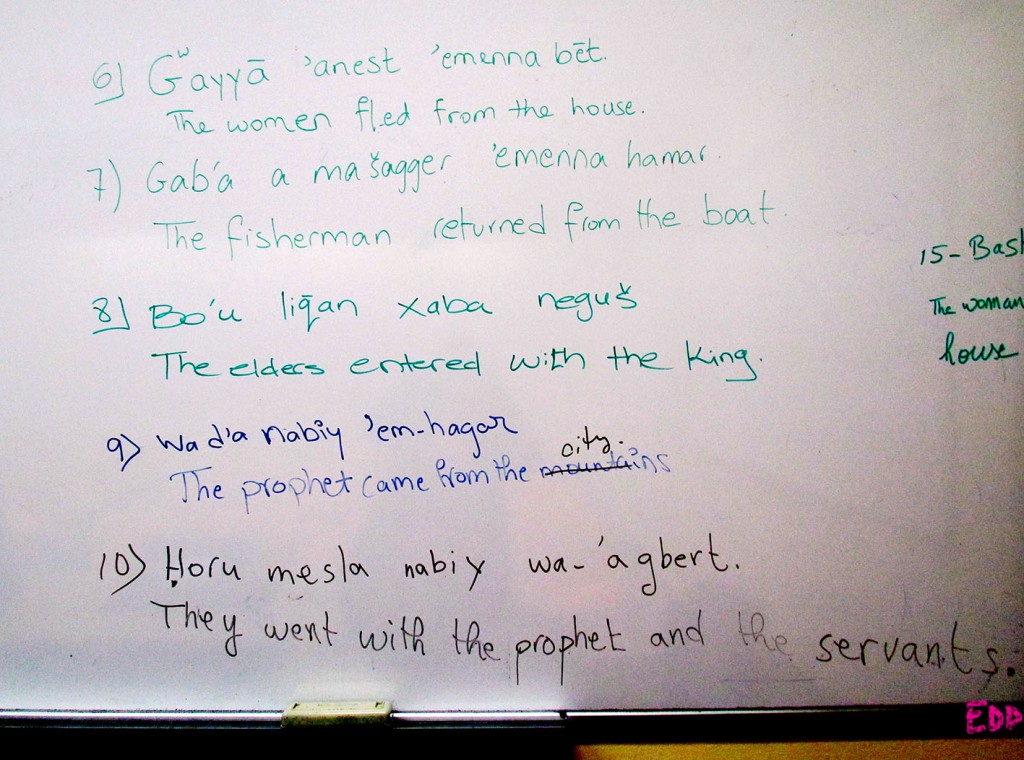 6) Gʷayyā 'anest 'emenna bēt.
The women fled from the house.
7) Gab'a a mašagger 'emenna hamar.
The fisherman returned from the boat.
8) Bo'u liqān xaba neguš
The elders entered with the King.
9) Wad'a nabiy 'em-hagar
The prophet came from the mountains city.
10) Ḥoru mesla nabiy wa-'agbert.
They went with the prophet and the servants.
15- Bas
The woman
house
EDD